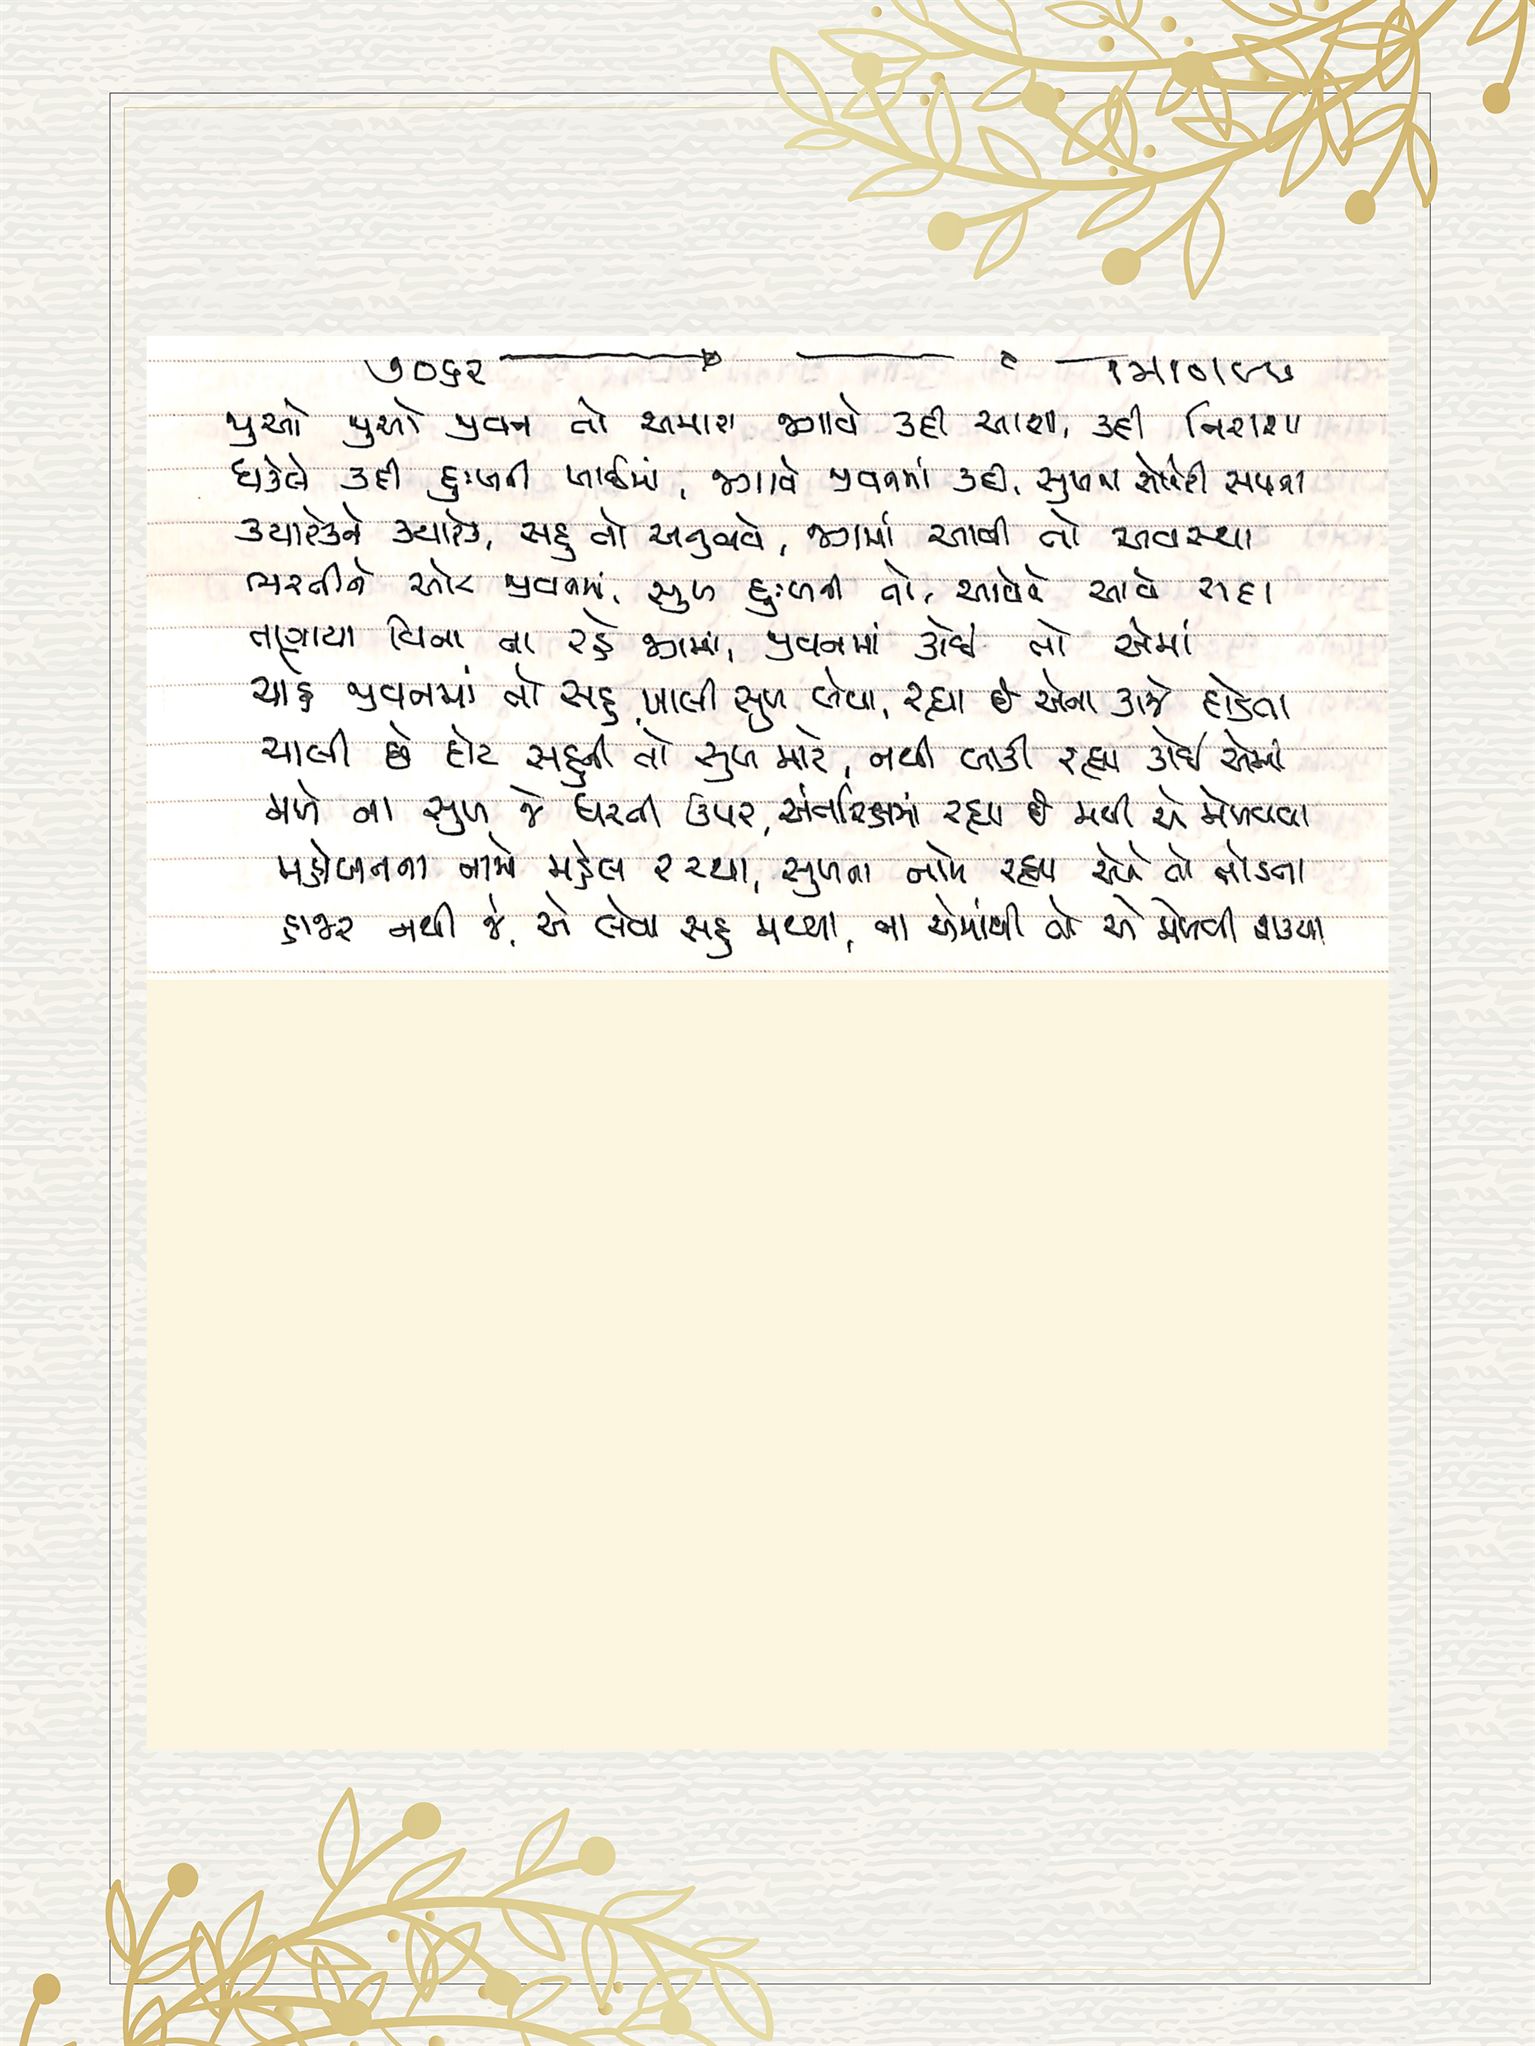 ૭૦૬૨
જુઓ જુઓ જીવન તો અમારા જગાવે કદી આશા, કદી નિરાશા
ધકેલે કદી દુઃખની ખાઈમાં, જગાવે જીવનમાં કદી, સુખના સોનેરી સપના
ક્યારેકને ક્યારેક, સહુ તો અનુભવે, જગમાં આવી તો અવસ્થા
ભરતીને ઓટ જીવનમાં, સુખ દુઃખની તો, આવેને આવે સદા
તણાયા વિના ના રહે જગમાં, જીવનમાં કોઈ તો એમાં
ચાહે જીવનમાં તો સહુ ખાલી સુખ લેવા, રહ્યા છે એના કાજે દોડતા
ચાલી છે દોટ સહુની તો સુખ માટે, નથી બાકી રહ્યા કોઈ એમાં
મળે ના સુખ જે ધરતી ઉપર, અંતરિક્ષમાં રહ્યા છે મથી એ મેળવવા
મનોરંજનના નામે મહેલ રચ્યા, સુખના નામે રહ્યા એને તો જોડતા
હાજર નથી જે, એ લેવા સહુ મથ્યા, ના એમાંથી તો એ મેળવી શક્યા